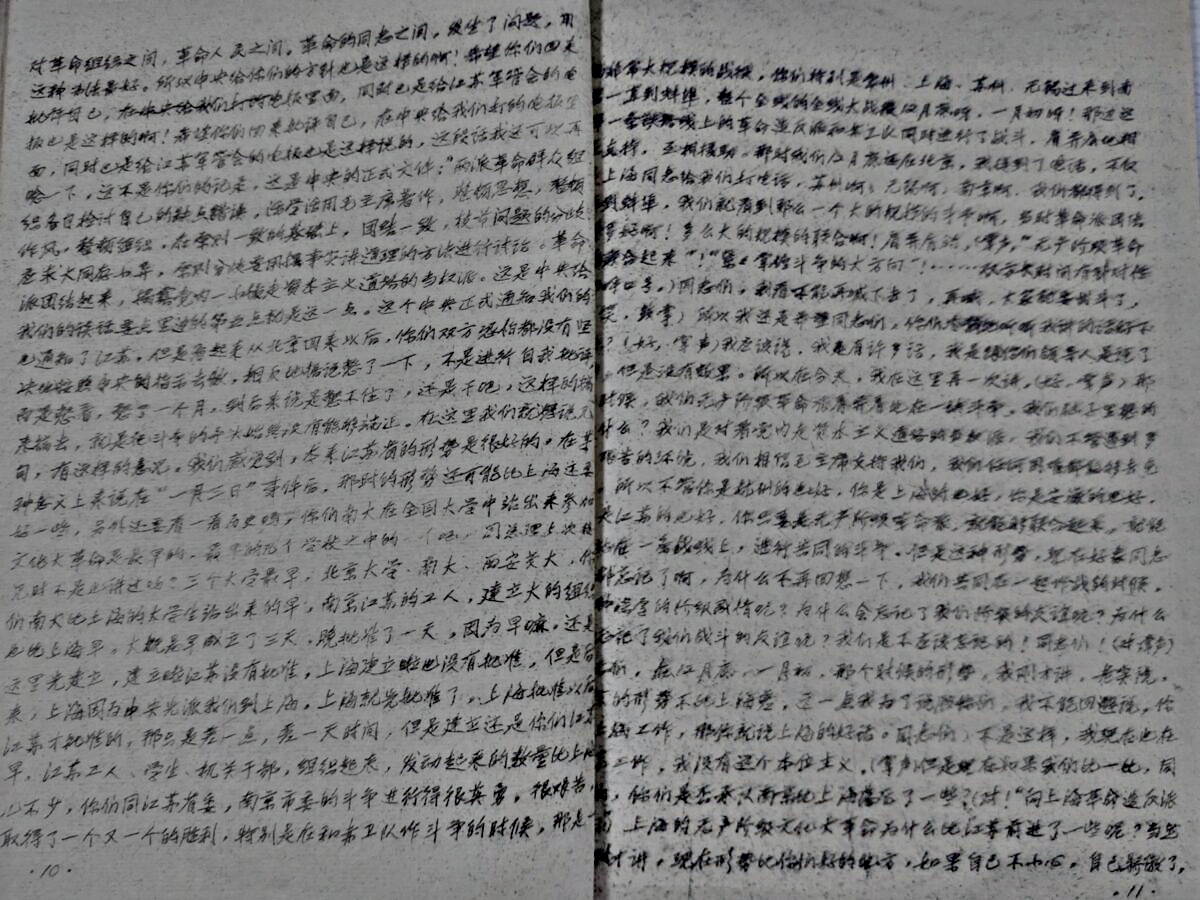 对革命组织之间，革命人民之间，革命的同志之间，发生了问题，用
这种方法最好。所以中央给你们的方针也是这样的啊！希望你们回来
批评自己，在中央给我们打的电报里面，同时也是给江苏军管会的电
报也是这样的啊！希望你们回来批评自己，在中央给我们打的电报里
面，同时也是给江苏军管会的电报也是这样提的，这段话我还可以再
念一下，这不是你们的记录，这是中央的正式文件：“两派革命群众组
织各自检讨自己的缺点错误，活学活用毛主席著作，整顿思想，整顿
作风，整顿组织，在原则一致的基础上，团结一致，枝节问题的分歧
求大同存小异，原则分歧要用摆事实讲道理的方法进行讨论。革命
派团结起来，揭露党内一小撮走资本主义道路的当权派。这是中央给
我们的谈话要点里边的第五点就是这一点。这个中央正式通知我们的
也通知了江苏。但是看起来从北京回来以后，你们双方恐怕都没有坚
决地按照中央的指示去做，相反地憋了一下，不是进行自我批评
而是憋着，憋了一个月，到后来说是憋不住了，还是干吧，这样的搞
来搞去，就是说斗争的矛头始终没有能够端正。在这里我们就想说几
句，有这样的意见。我们感觉到，本来江苏省的形势是很好的。在某
种意义上来说在“一月三日”事件后，那时的形势还可能比上海还要
好一些，另外还要看一看历史嘛，你们南大在全国大学中站出来参加
文化大革命是最早的，最早的几个学校之中的一个吧，周总理上次接
见时不是也讲过吗？三个大学最早，北京大学、南大、西安交大，你
们南大比上海的大学生站出来的早，南京江苏的工人，建立大的组织
也比上海早。大概是早成立了三天，晚批准了一天，因为早嘛，还是
这里先建立，建立啦江苏没有批准，上海建立啦也没有批准，但是后
来，上海因为中央先派我们到上海，上海就先批准了，上海批准以后
江苏才批准的，那只是差一点，差一天时间，但是建立还是你们江苏
早，江苏工人、学生、机关干部，组织起来，发动起来的数量比上海
也不少，你们同江苏省委，南京市委的斗争进行得很英勇，很艰苦，
取得了一个又一个的胜利，特别是在和赤卫队作斗争的时候，那是
·10·
非常大规模的战役，你们特别是常州、上海、苏州、无锡过来到南
一直到蚌埠，整个全线的大战役12月底啊，一月初啊！那边这
线上的革命造反派和赤卫队同时进行了战斗，肩并肩地相
支持，互相援助。那时我们12月底还在北京，我得到了电话，不仅
上海同志给我们打电话，苏州啊，无锡啊，南京啊，我们都得到了，
到蚌埠，我们就看到那么一个大的规模的斗争啊，当时革命派团结
多好啊！多么大的规模的联合啊！肩并肩的，（掌声，“无产阶级革命
联合起来”！“掌握斗争的大方向”！……
口号。）同志们，我看不能再喊下去了，再喊，大家
笑，鼓掌）所以我还是希望同志们，你们听听我讲的话好不
？（好，掌声）我应该说，我是有许多话，我是跟你们领导人是说了
但是没有效果。所以在今天，我在这里再一次讲。（好，掌声）那
时候，我们无产阶级革命派肩并肩地在一块斗争，我们脑子里想的
什么？我们是对着党内走资本主义道路的当权派，我们不管遇到多
艰苦的环境，我们相信毛主席支持我们，我们任何困难都能够去克
所以不管你是杭州的也好，你是上海的也好，你是安徽的也好，
是江苏的也好，你只要是无产阶级革命派，就能够联合起来，就能
在一条战线上，进行共同的斗争。但是这种形势，现在好象同志
忘记了啊，为什么不再回想一下，我们共同在一起作战的时候，
深厚的阶级感情呢？为什么会忘记了我们的友谊呢？为什么
忘记了我们战斗的友谊呢？我们是不应该忘记的！同志们！（掌声）
们，在12月底，一月初，那个时候的形势，我刚才讲，老实说，
的形势不比上海差，这一点我为了说服你们，我不能回避说，你
上海工作，那你就说上海的好话。同志们，不是这样，我现在也在
工作，我没有这个本位主义，（掌声）但是现在如果我们比一比，同
，你们是否承认南京比上海落后了一些？（对！“向上海革命造反派
）上海的无产阶级文化大革命为什么比江苏前进了一些呢？当然
讲，现在形势比你们好的地方，如果自己不小心，自己骄傲了，
·11·